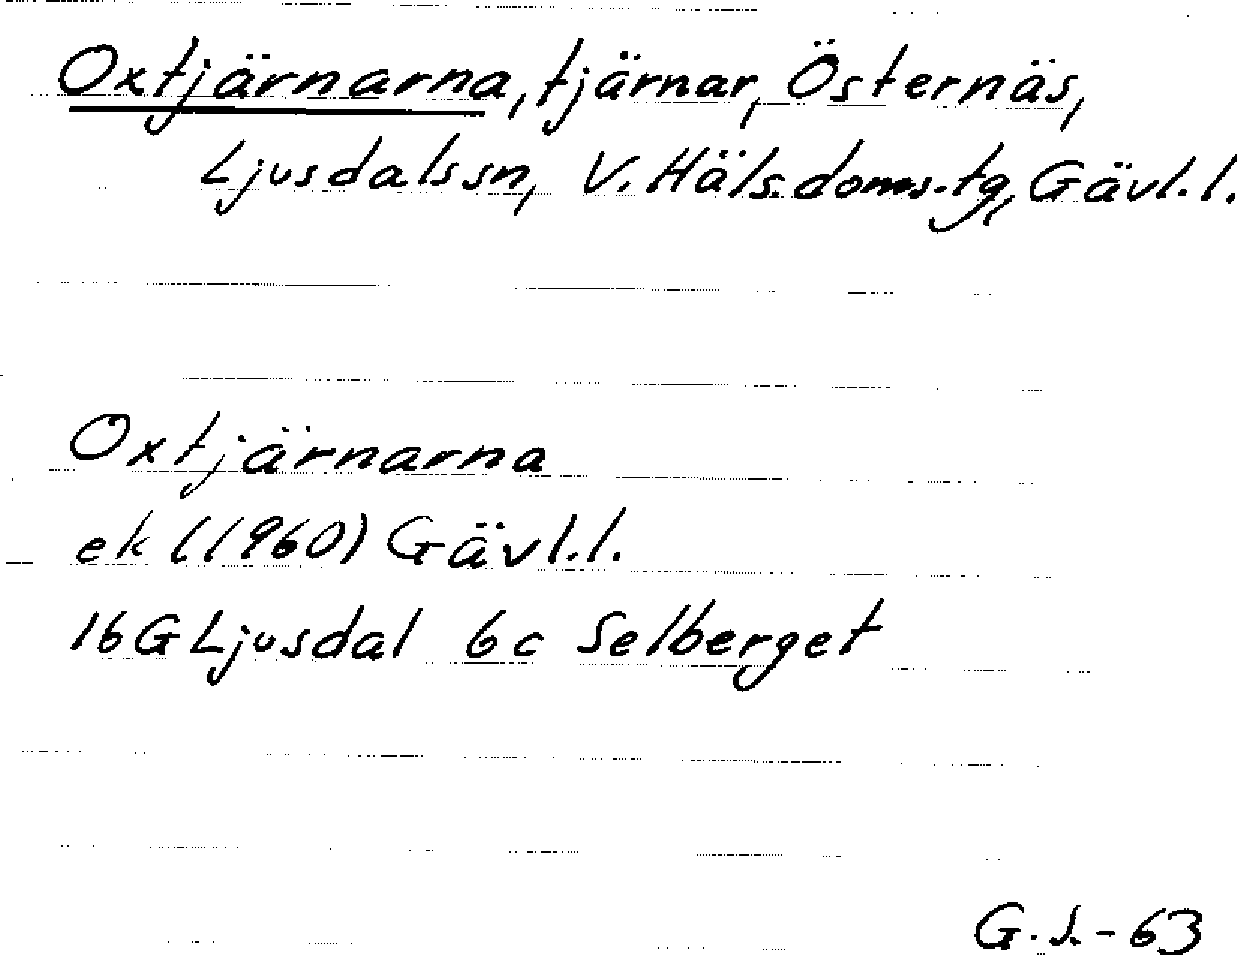 Oxtjärnarna, tjärnar, Östernäs,
Ljusdals sn, V. Häls. doms.tg, Gävl.l.
Oxtjärnarna
ek (1960) Gävl.l.
16G Ljusdal 6c Selberget
G.S.-63